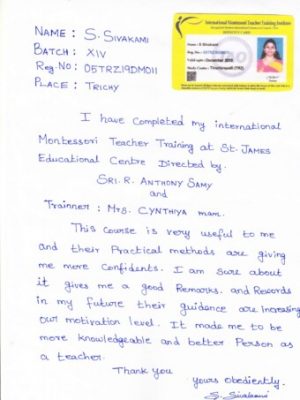 NAME : S. SIVAKAMI
BATCH : XIV
Reg.No : 05TRZ19DM011
PLACE : TRICHY
International Montessori Teacher Training Institute
IDENTITY CARD
Name : S Sivakami
Reg.No :
Valid upto : December 2019
Study Centre : Tiruchirapalli (TRZ)
I have completed my international
Montessori Teacher Training at St. JAMES
Educational Centre Directed by.
SRI. R. ANTHONY SAMY
and
Trainner : Mrs. CYNTHIYA mam.
This Course is very useful to me
and their Practical methods are giving
me more Confidents. I am sure about
it gives me a good Remarks. and Records
in my future their guidence are increasing
our motivation level. It made me to be
more knowledgeable and better Person as
a teacher.
Thank you
yours obediently.
S. Sivakami